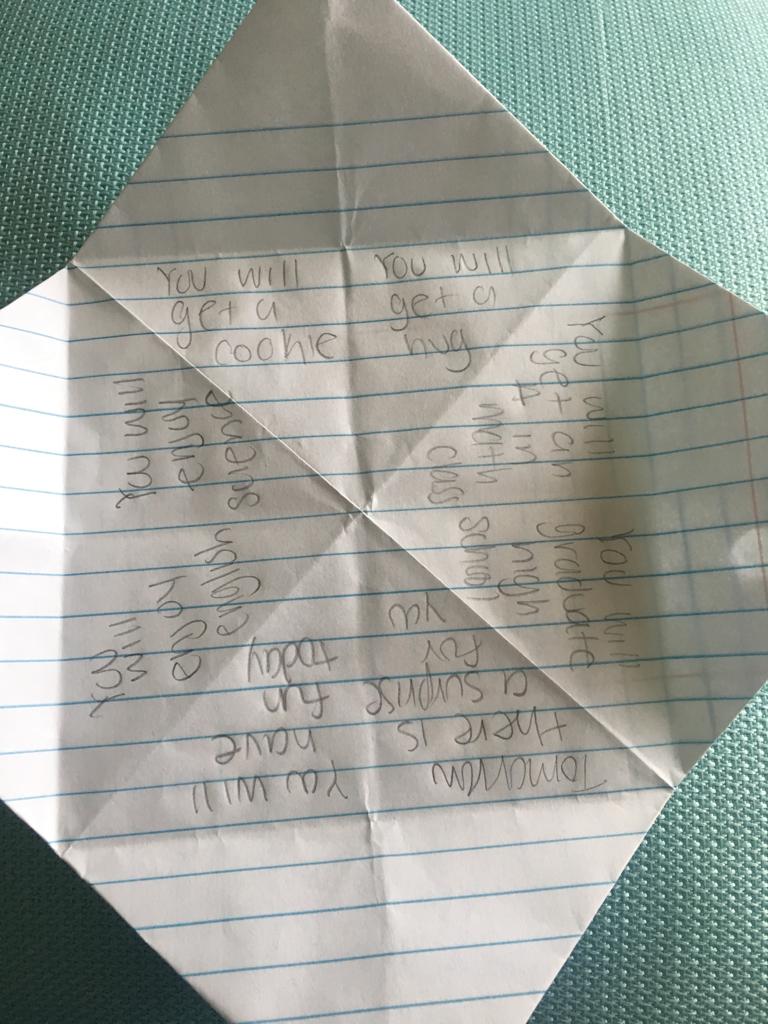 You will
get a
cookie
You will
get a
hug
You will
get an
A in
math
class
You will
graduate
high
school
Tomorrow
there is
a suprise
for
you
You will
have
fun
today
You
will
enjoy
english
You will
enjoy
science